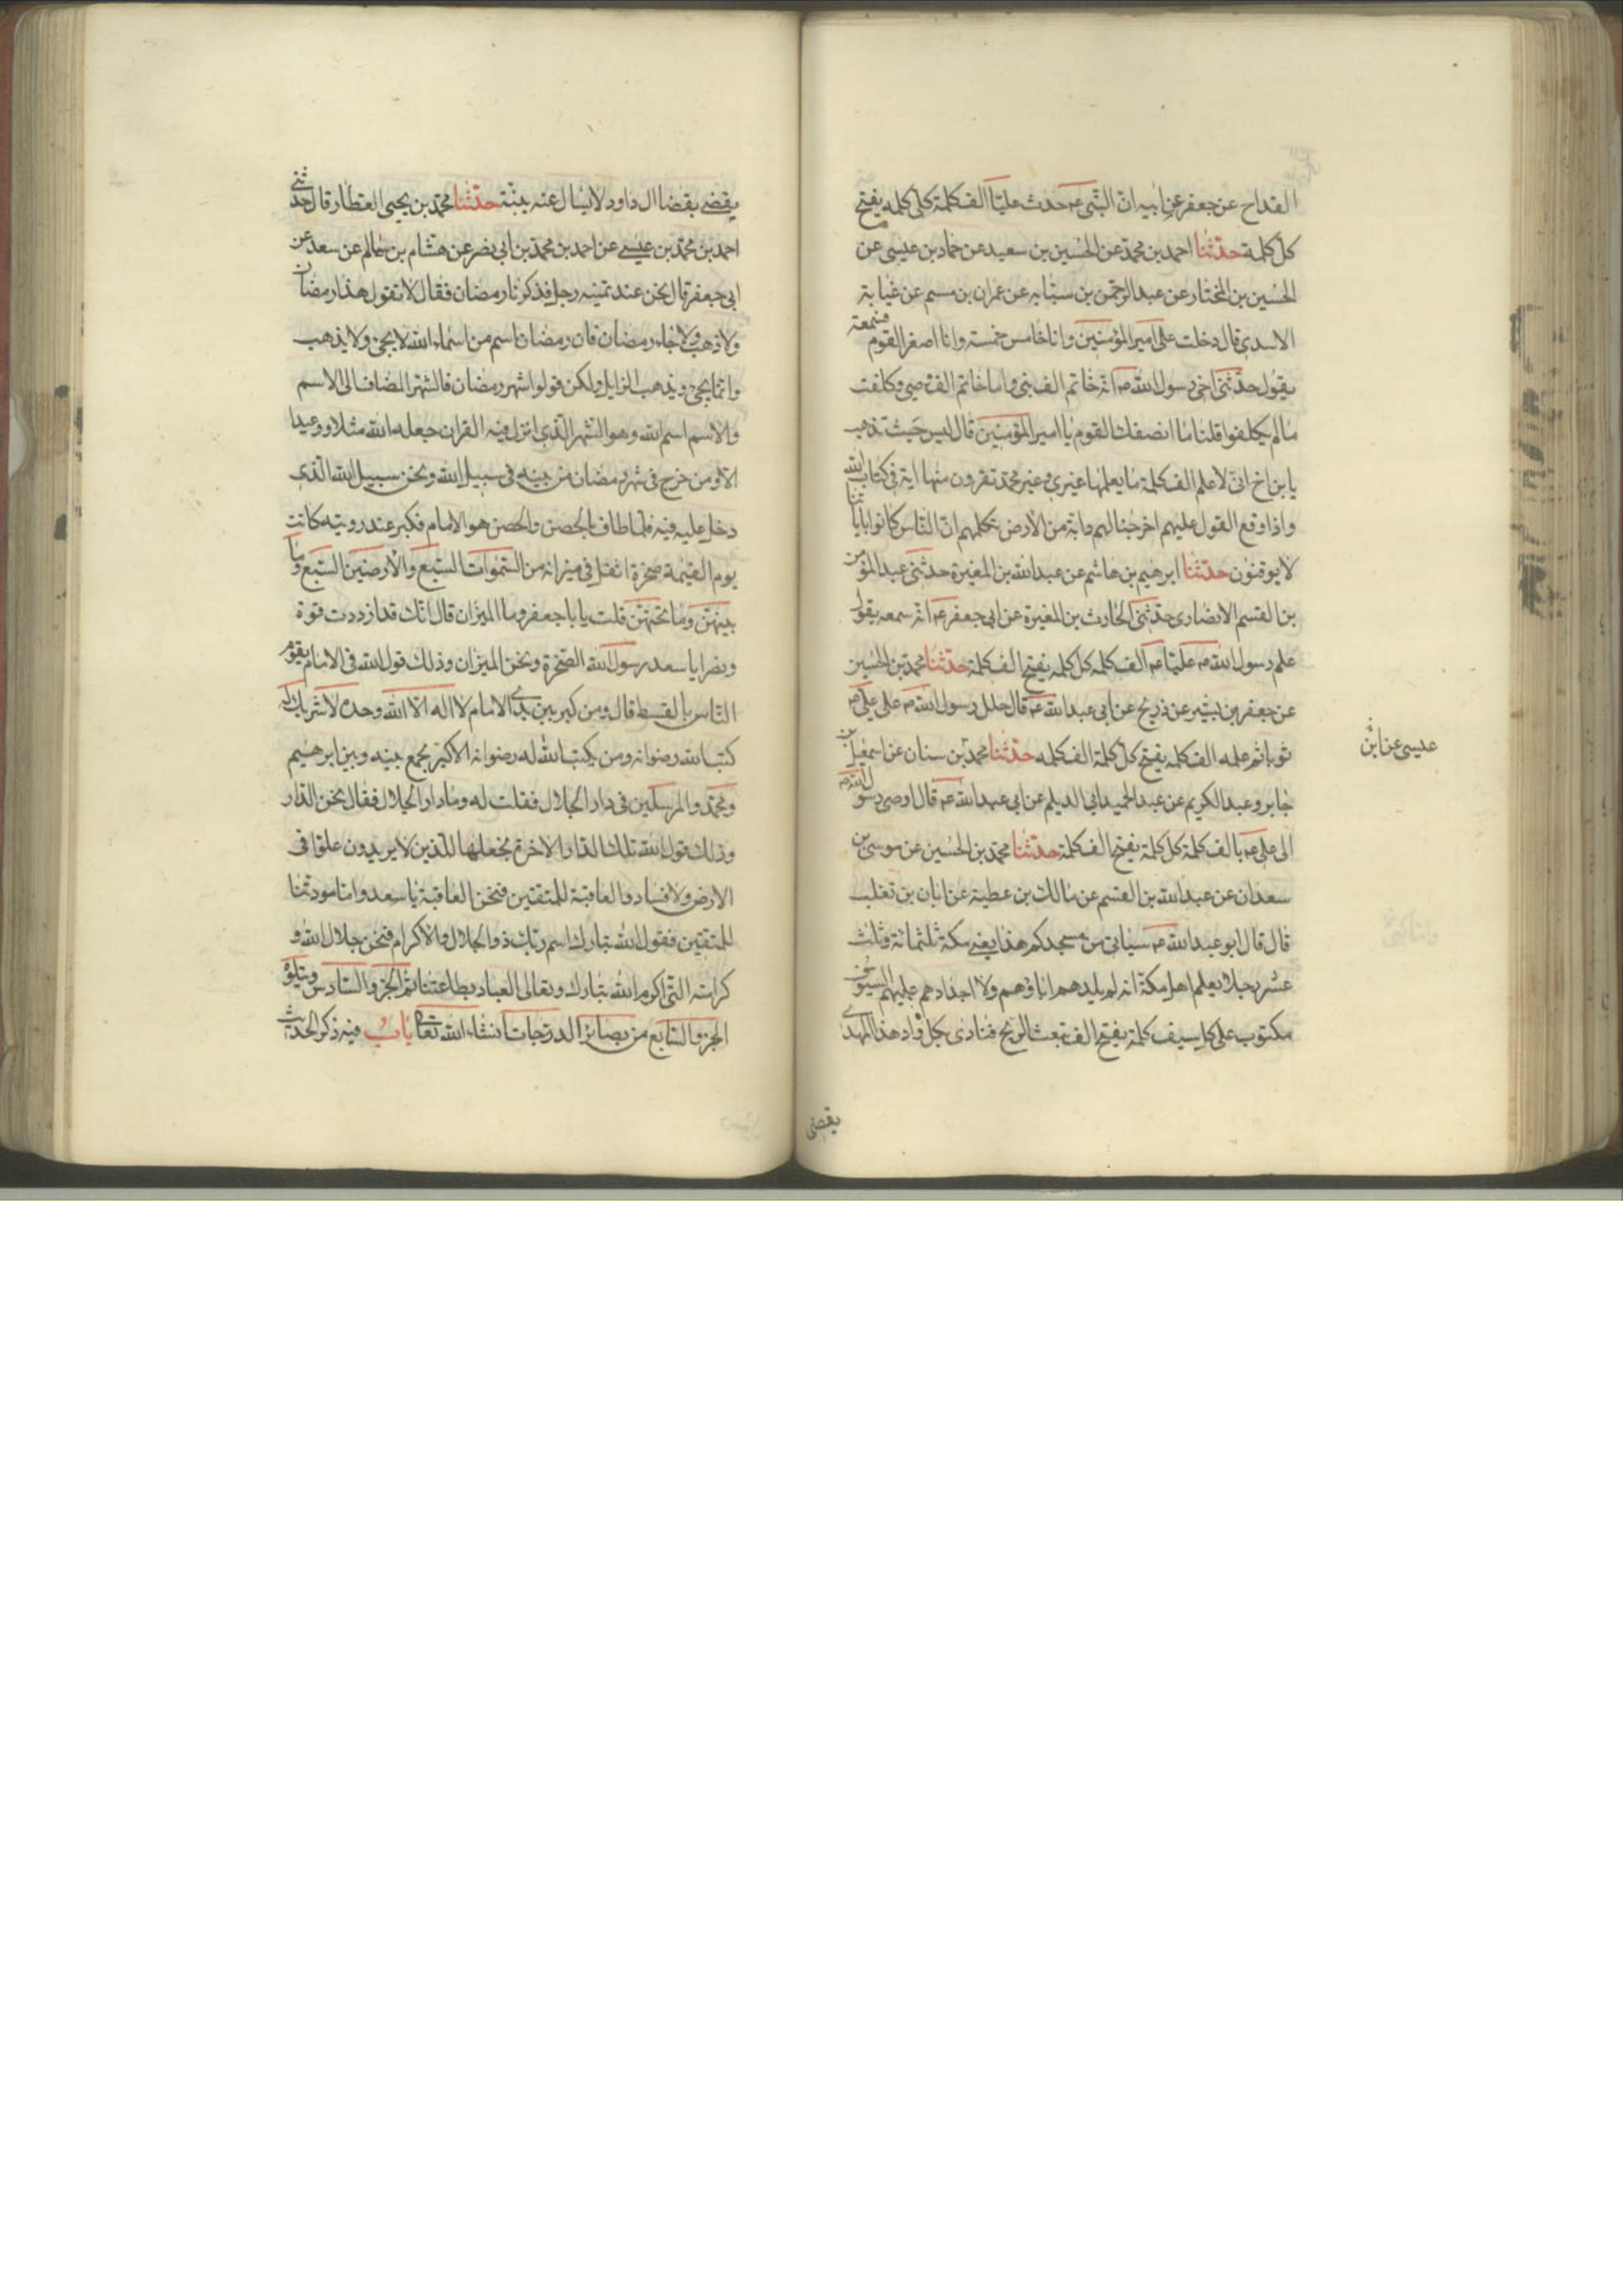 القداح عن جعفر عن ابيه ان النبي ص حدث عليا الف كلمة كل كلمه يفتح
كل كلمة حدثنا احمد بن محمد عن الحسين بن سعيد عن حماد بن عيسى عن
الحسين بن المختار عن عبد الرحمن بن سيابه عن عمران بن ميسم عن عباية
الاسدي قال دخلت على امير المؤمنين وانا خامس خمسة وانا اصغر القوم فسمعته
يقول حدثني اخي رسول الله ص انه خاتم الف نبي واما خاتم الف وصي وكلفت
ما لم يكلفوا قلنا ما انصفك القوم يا امير المؤمنين قال ليس حيث تذهب
يا بن اخ اني لاعلم الف كلمة ما يعلمها غيري وغير محمد تقرون منها اية في كتاب الله
واذا وقع القول عليهم اخرجنا لهم دابة من الارض تكلمهم ان الناس كانوا باياتنا
لا يوقنون حدثنا ابرهيم بن هاشم عن عبد الله بن المغيرة حدثني عبد المؤمن
بن القسم الانصاري حدثني الحارث بن المغيرة عن ابي جعفر ع انه سمعه يقول
علم رسول الله ص عليا ع الف كلمه كل كلمه يفتح الف كلمة حدثنا محمد بن الحسين
عن جعفر بن بشير عن ذريح عن ابي عبد الله ع قال جلل رسول الله ص على علي ع
ثوبا ثم علمه الف كلمه يفتح كل كلمة الف كلمه حدثنا محمد بن سنان عن اسمعيل بن
عيسى عن ابن
جابر وعبد الكريم عن عبد الحميد ابي الديلم عن ابي عبد الله ع قال اوصى رسول الله ص
الى علي ع بالف كلمة كل كلمة يفتح الف كلمة حدثنا محمد بن الحسين عن موسى بن
سعدان عن عبد الله بن القسم عن مالك بن عطية عن ابان بن تغلب
قال قال ابو عبد الله ع سياتي من مسجدكم هذا يعني مكة ثلثمائة وثلث
عشر رجلا يعلم اهل مكة انه لم يلدهم اباؤهم ولا اجدادهم عليهم السيوف
مكتوب على كل سيف كلمة يفتح الف تبعث الريح فتنادي بكل واد هذا المهدي
يقضي
يقضي بقضا ال داود لا يسال عنه بينة حدثنا محمد بن يحيى العطار قال حدثني
احمد بن محمد بن عيسى عن احمد بن محمد بن ابي نصر عن هشام بن سالم عن سعد عن
ابي جعفر قال نحن عند ثمنيه رجل فذكرنا رمضان فقال لا تقول هذا رمضان
ولا ذهب ولا جاء رمضان فان رمضان اسم من اسماء الله لا يجئ ولا يذهب
وانما يجئ ويذهب الزايل ولكن قولوا شهر رمضان فالشهر المضاف الى الاسم
والاسم اسم الله وهو الشهر الذي انزل فيه القران جعله الله مثلا ووعيدا
الا ومن خرج في شهر رمضان من بيته في سبيل الله ونحن سبيل الله الذي
دخل عليه فيه فلما طاف بالحصن والحصن هو الامام فكبر عند رويته كانت
يوم القيمة صخرة اثقل في ميزانه من السموات السبع والارضين السبع وما
بينهن وما تحتهن قلت يا با جعفر وما الميزان قال انك قد ازددت قوة
ونضرا يا سعد رسول الله الصخرة ونحن الميزان وذلك قول الله في الامام ليقوم
الناس بالقسط قال ومن كبر بين يدي الامام لا اله الا الله وحده لا شريك له
كتب الله رضوانه ومن يكتب الله له رضوانه الاكبر يجمع بينه وبين ابرهيم
ومحمد والمرسلين في دار الجلال فقلت له وما دار الجلال فقال نحن الدار
وذلك قول الله تلك الدار الاخرة نجعلها للذين لا يريدون علوا في
الارض ولا فسادا والعاقبة للمتقين فنحن العاقبة يا سعد واما مودتنا
للمتقين فقول الله تبارك اسم ربك ذو الجلال والاكرام فنحن جلال الله و
كرامته التي اكرم الله تبارك وتعالى العباد بطاعتنا تم الجزو السادس ويتلوه
الجزو السابع من بصائر الدرجات انشاء الله تعالى باب فيه ذكر الحديث